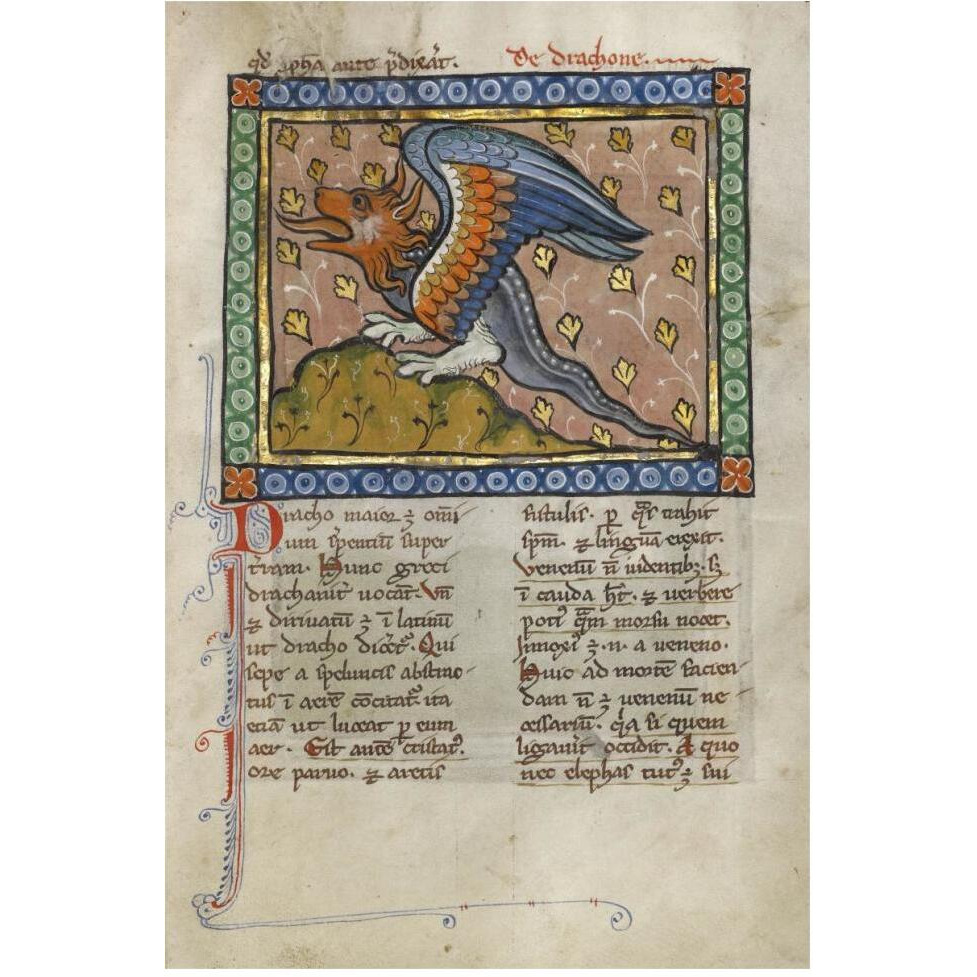 qd ꝓph̄a ante p̄dixāt.
De drachone.
Dracho maior ⁊ om̄i
um s̄pentiū super
t̄ram. Hunc greci
drachanur̄ uocāt. Vn̄
⁊ diriuatū ÷ ī latinū
ut dracho dicet᷑. Qui
sepe a speluncis abstrac
tus ī aerē cōcitat᷑. ita
etiā ut luceat ꝑ eum
aer. Est autē cristat᷒.
ore paruo. ⁊ artis
fistulis. ꝑ quas trahit
spm̄. ⁊ linguā exexit.
Venenū n̄ in dentib᷒. sꝫ
ī cauda h̄t. ⁊ uerbere
poti᷒ quam morsu nocet.
Innoxi᷒ ÷ .n. a ueneno.
Huic ad mortē facien
dam n̄ ÷ uenenū ne
cessariū. q̄a si quem
ligauit occidit. A quo
nec elephas tut᷒ ÷ sui